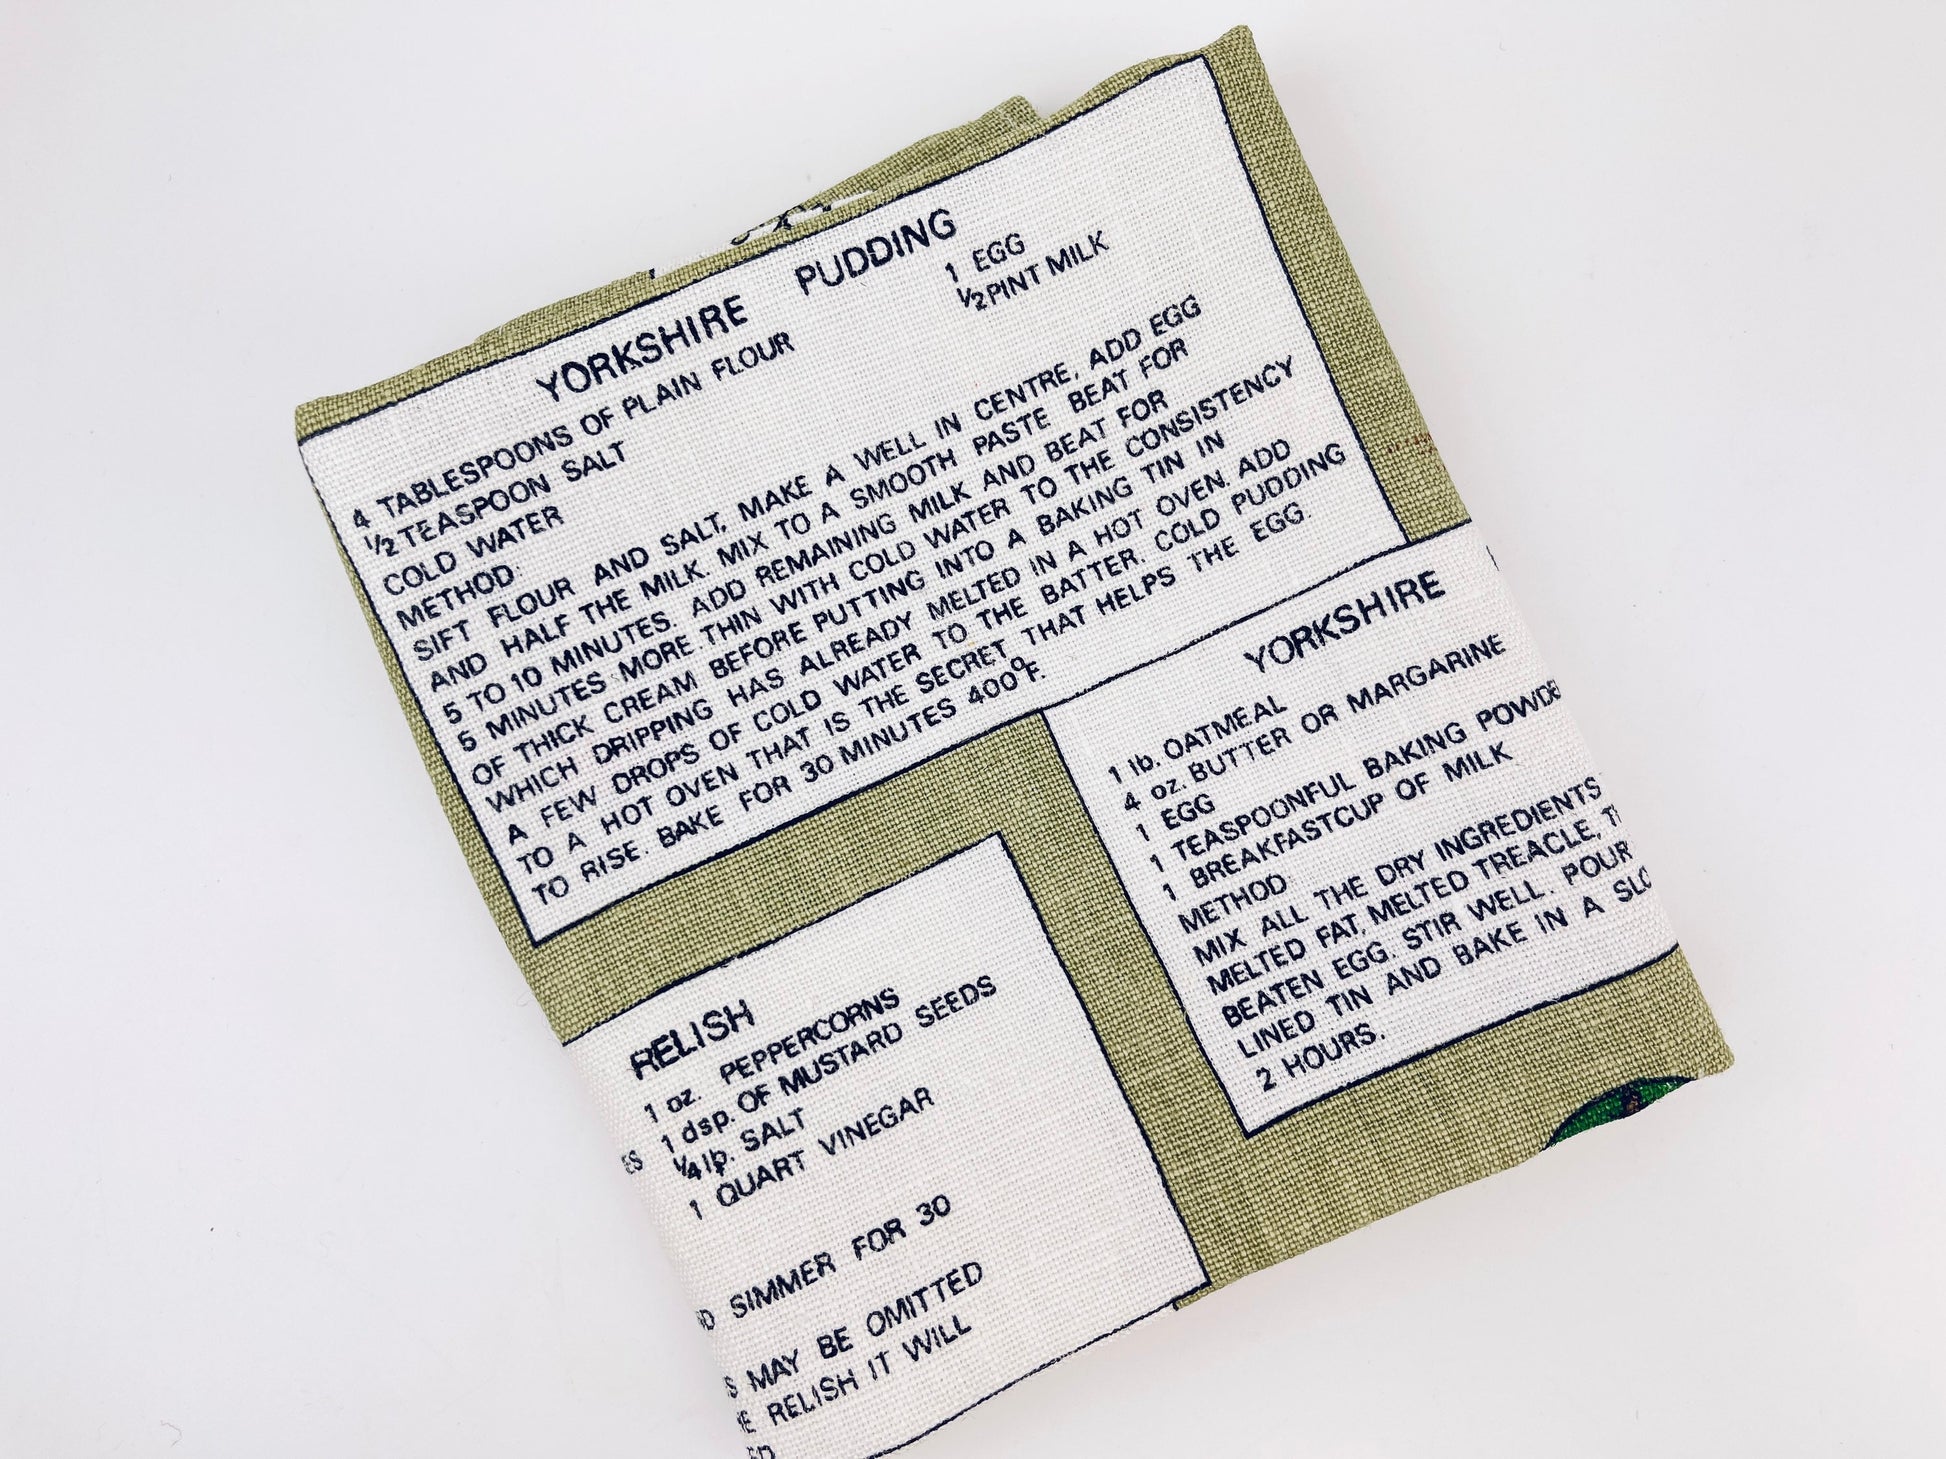 YORKSHIRE PUDDING
4 TABLESPOONS OF PLAIN FLOUR
1 EGG
½ TEASPOON SALT
½ PINT MILK
COLD WATER
METHOD:
SIFT FLOUR AND SALT, MAKE A WELL IN CENTRE, ADD EGG
AND HALF THE MILK. MIX TO A SMOOTH PASTE BEAT FOR
5 TO 10 MINUTES. ADD REMAINING MILK AND BEAT FOR
5 MINUTES MORE. THIN WITH COLD WATER TO THE CONSISTENCY
OF THICK CREAM BEFORE PUTTING INTO A BAKING TIN IN
WHICH DRIPPING HAS ALREADY MELTED IN A HOT OVEN. ADD
A FEW DROPS OF COLD WATER TO THE BATTER. COLD PUDDING
TO A HOT OVEN THAT IS THE SECRET THAT HELPS THE EGG.
TO RISE. BAKE FOR 30 MINUTES 400°F.
YORKSHIRE
1 lb. OATMEAL
4 oz. BUTTER OR MARGARINE
1 EGG
1 TEASPOONFUL BAKING POWDE
1 BREAKFASTCUP OF MILK
METHOD:
MIX ALL THE DRY INGREDIENTS
MELTED FAT, MELTED TREACLE, T
BEATEN EGG. STIR WELL. POUR
LINED TIN AND BAKE IN A SLO
2 HOURS.
RELISH
1 oz. PEPPERCORNS
1 dsp. OF MUSTARD SEEDS
ES ¼ lb. SALT
1 QUART VINEGAR
D SIMMER FOR 30
S MAY BE OMITTED
E RELISH IT WILL
ED